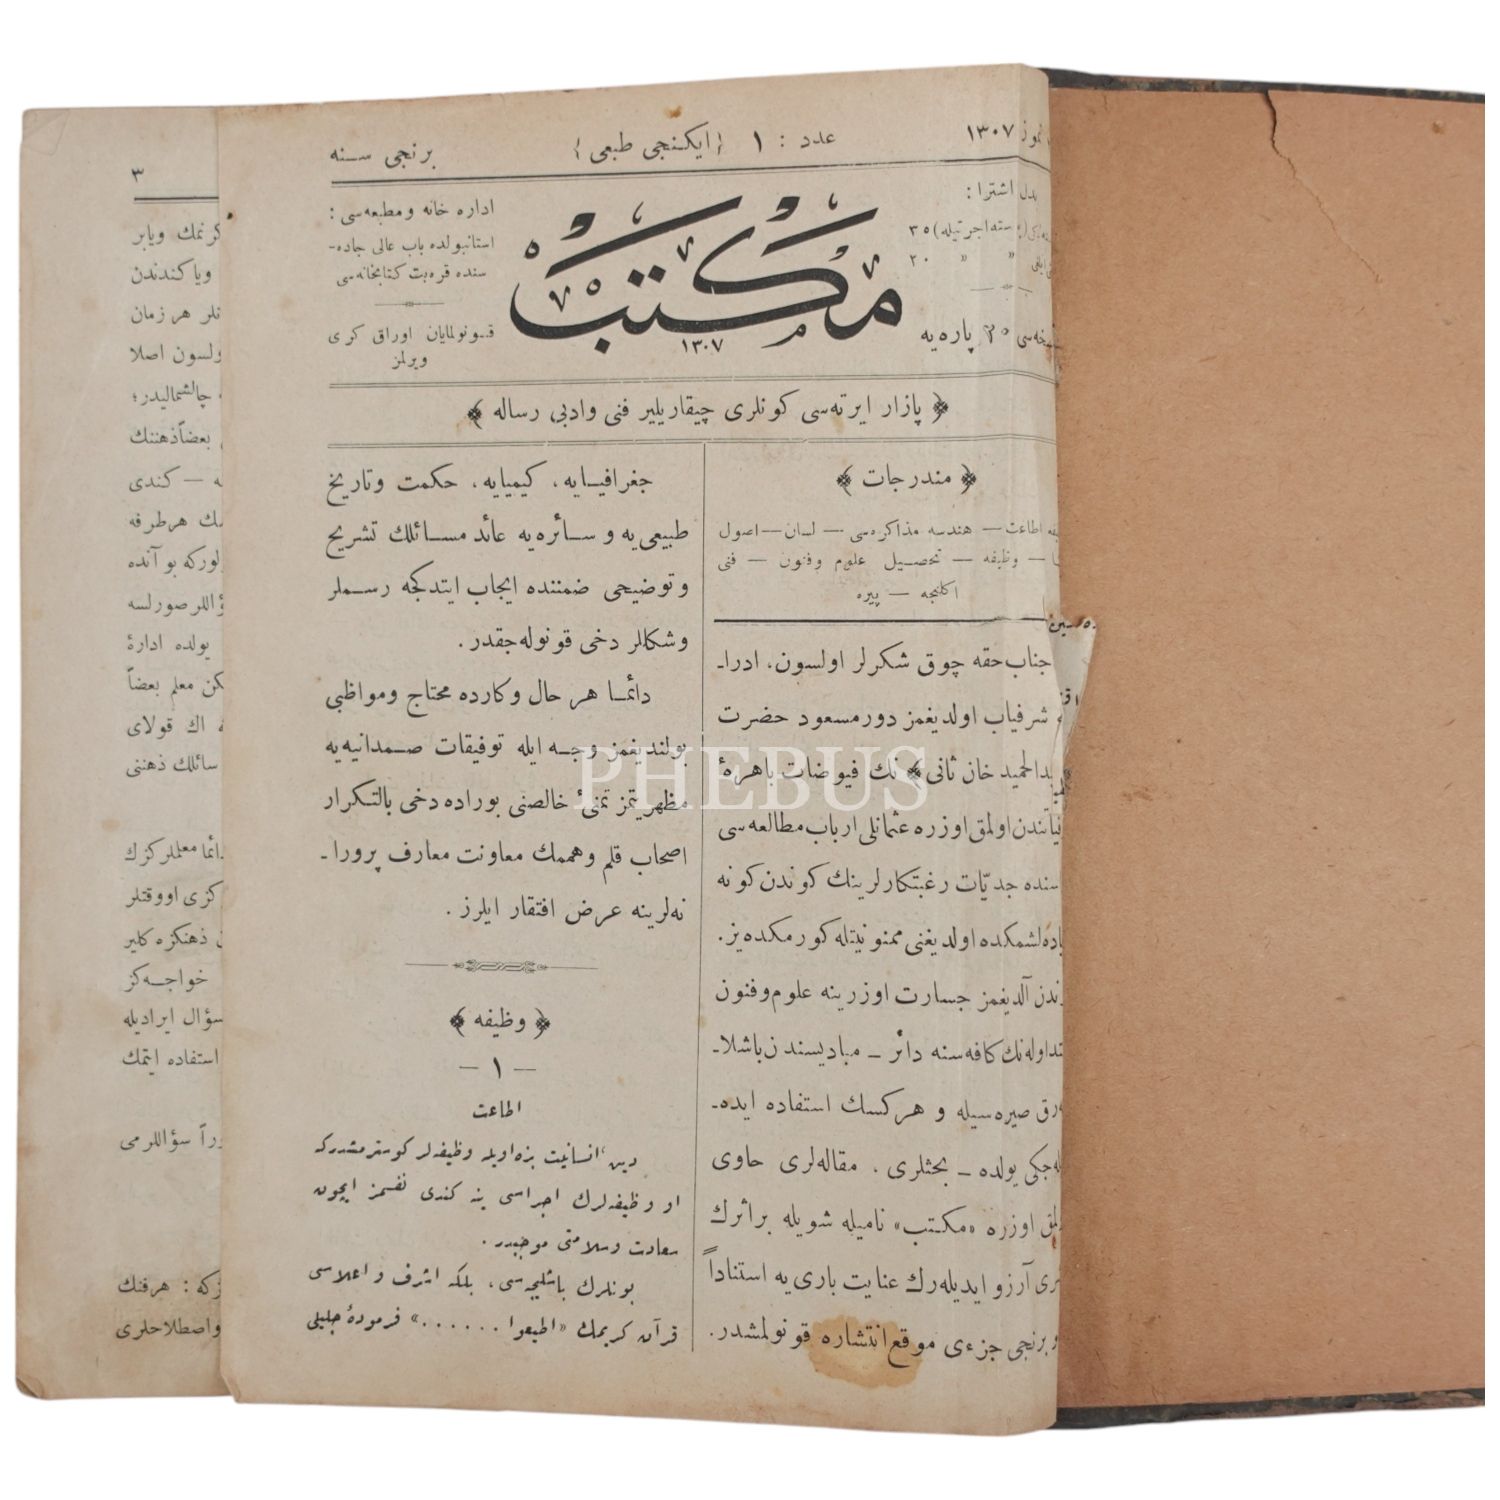 تموز ١٣٠٧
عدد : ١ {ایكنجی طبعی}
برنجی سنه
بدل اشترا :
٣٥
٢٠ " "
٢٠ پاره یه
مكتب
١٣٠٧
اداره خانه و مطبعه سی :
استانبولده باب عالی جاده-
سنده قره بت كتابخانه سی
قونولمایان اوراق كری
ویرلمز
﴿ پازار ایرته سی كونلری چیقاریلیر فنی وادبی رساله ﴾
﴿ مندرجات ﴾
اطاعت — هندسه مذاكره سی — لسان — اصول
— وظیفه — تحصیل علوم وفنون — فنی
اكلنجه — پیره
جناب حقه چوق شكرلر اولسون، ادرا-
شرفیاب اولدیغمز دورمسعود حضرت
خان ثانی ﴾ نك فیوضات باهرهٔ
اولمق اوزره عثمانلی ارباب مطالعه سی
سنده جدیّات رغبتكارلرینك كوندن كونه
اولدیغنی ممنونیتله كورمكده یز.
آلدیغمز جسارت اوزرینه علوم وفنون
كافه سنه دائر — مبادیسندن باشلا-
صیره سیله و هركسك استفاده ایده-
یولده — بحثلری ، مقاله لری حاوی
اوزره «مكتب» نامیله شویله براثرك
آرزو ایدیله رك عنایت باری یه استناداً
برنجی جزءی موقع انتشاره قونولمشدر.
جغرافیایه، كیمیایه، حكمت وتاریخ
طبیعی یه و سائره یه عائد مسائلك تشریح
وتوضیحی ضمننده ایجاب ایتدكجه رسملر
وشكللر دخی قونوله جقدر.
دائما هر حال وكارده محتاج ومواظبی
بولندیغمز وجه ایله توفیقات صمدانیه یه
مظهریتمز تمنئ خالصنی بوراده دخی بالتكرار
اصحاب قلم وهممك معاونت معارف پرورا-
نه لرینه عرض افتقار ایلرز .
﴿ وظیفه ﴾
— ١ —
اطاعت
دین، انسانیت بزه اویله وظیفه لر كوسترمشدركه
او وظیفه لرك اجراسی ینه كندی نفسمز ایچون
سعادت وسلامتی موجبدر .
بونلرك باشلیجه سی، بلكه اشرف واعلاسی
قرآن كریمك «اطیعوا ......» فرمودهٔ جلیلی
٣
كرنمك ویابر
ویا كندندن
هر زمان
اصلا
چالشمالیدر؛
بعضاً ذهننك
— كندی
هر طرفه
بو آنده
صورلسه
یولده ادارهٔ
معلم بعضاً
اك قولای
ذهننی
معلملركزك
اووقتلر
ذهنكزه كلیر
خواجه كز
سؤال ایرادیله
استفاده ایتمك
سؤاللرمی
هرقنك
واصطلاحلری
PHEBUS